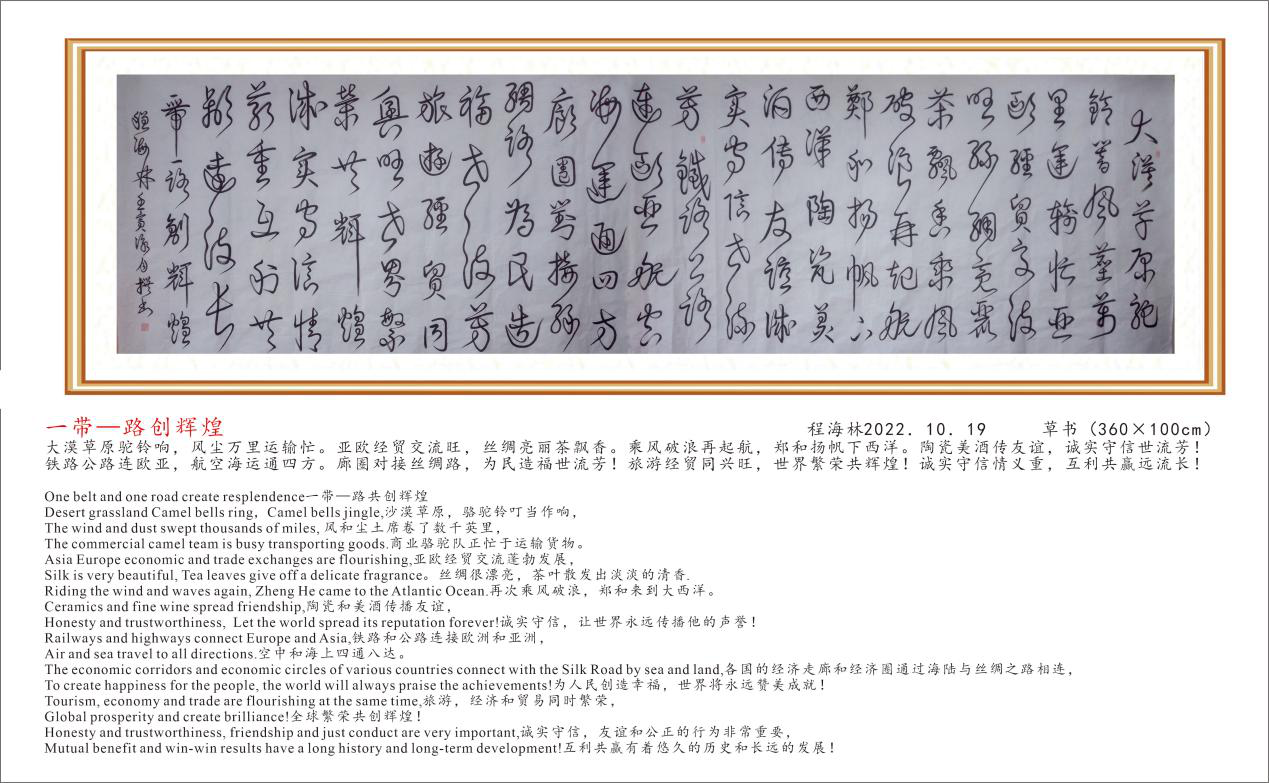 大漠草原駝
鈴響風塵萬
里運輸忙亞
歐經貿交流
旺絲綢亮麗
茶飄香乘風
破浪再起航
鄭和揚帆下
西洋陶瓷美
酒傳友誼誠
实守信世流
芳鐵路公路
連歐亞航空
海運通四方
廊圈對接絲
綢路為民造
福世流芳
旅遊經貿同
興旺世界繁
榮共輝煌
誠实守信情
義重互利共
贏遠流长
帶一路創輝煌
程海林壬寅撰书
一带—路创辉煌 程海林2022. 10. 19 草书（360×100cm）
大漠草原驼铃响，风尘万里运输忙。亚欧经贸交流旺，丝绸亮丽茶飘香。乘风破浪再起航，郑和扬帆下西洋。陶瓷美酒传友谊，诚实守信世流芳！
铁路公路连欧亚，航空海运通四方。廊圈对接丝绸路，为民造福世流芳！旅游经贸同兴旺，世界繁荣共辉煌！诚实守信情义重，互利共赢远流长！
One belt and one road create resplendence一带—路共创辉煌
Desert grassland Camel bells ring，Camel bells jingle,沙漠草原，骆驼铃叮当作响，
The wind and dust swept thousands of miles, 风和尘土席卷了数千英里，
The commercial camel team is busy transporting goods.商业骆驼队正忙于运输货物。
Asia Europe economic and trade exchanges are flourishing,亚欧经贸交流蓬勃发展，
Silk is very beautiful, Tea leaves give off a delicate fragrance。丝绸很漂亮，茶叶散发出淡淡的清香.
Riding the wind and waves again, Zheng He came to the Atlantic Ocean.再次乘风破浪，郑和来到大西洋。
Ceramics and fine wine spread friendship,陶瓷和美酒传播友谊，
Honesty and trustworthiness, Let the world spread its reputation forever!诚实守信，让世界永远传播他的声誉！
Railways and highways connect Europe and Asia,铁路和公路连接欧洲和亚洲，
Air and sea travel to all directions.空中和海上四通八达。
The economic corridors and economic circles of various countries connect with the Silk Road by sea and land,各国的经济走廊和经济圈通过海陆与丝绸之路相连，
To create happiness for the people, the world will always praise the achievements!为人民创造幸福，世界将永远赞美成就！
Tourism, economy and trade are flourishing at the same time,旅游，经济和贸易同时繁荣，
Global prosperity and create brilliance!全球繁荣共创辉煌！
Honesty and trustworthiness, friendship and just conduct are very important,诚实守信，友谊和公正的行为非常重要，
Mutual benefit and win-win results have a long history and long-term development!互利共赢有着悠久的历史和长远的发展！